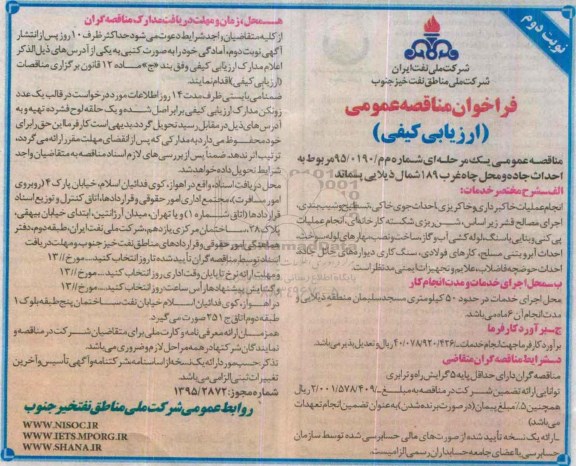 نوبت دوم
شرکت ملی نفت ایران
شرکت ملی مناطق نفت خیز جنوب
فراخوان مناقصه عمومی
(ارزیابی کیفی)
مناقصه عمومی یک مرحله‌ای شماره م‌م/۹۵/۰۱۹۰ مربوط به
احداث جاده و محل چاه غرب ۱۸۹ شمال ذیلایی پسماند
الف- شرح مختصر خدمات:
انجام عملیات خاکبرداری و خاکریزی، احداث جوی خاکی، تسطیح و شیب‌بندی،
اجرای مصالح قشر زیر اساس، شن‌ریزی شکسته کارخانه‌ای، انجام عملیات
پی‌کنی و بنایی با سنگ، لوله‌کشی آب و گاز، ساخت و نصب مهارهای لوله، ساخت
احداث آبرو بتنی مسلح، کارهای فولادی، سنگ کاری دیوارهای حائل جاده،
احداث حوضچه فاضلاب، علایم و تجهیزات ایمنی مدنظر است.
ب- محل اجرای خدمات و مدت انجام کار
محل اجرای خدمات در حدود ۵۰ کیلومتری مسجدسلیمان منطقه ذیلایی و
مدت انجام آن ۶ ماه می‌باشد.
ج- برآورد کارفرما
برآورد کارفرما جهت انجام خدمات ۴۰/۰۷۸/۹۲۰/۴۲۶ ریال و تعدیل‌پذیر می‌باشد.
د- شرایط مناقصه‌گران متقاضی
مناقصه‌گران دارای حداقل پایه ۵ گرایش راه و ترابری
توانایی ارائه تضمین شرکت در مناقصه به مبلغ ۲/۰۰۱/۵۷۸/۴۰۹ ریال
همچنین ۵٪ مبلغ پیمان (در صورت برنده شدن) به عنوان تضمین انجام تعهدات
می‌باشد)
- ارائه یک نسخه تأیید شده از صورت‌های مالی حسابرسی شده توسط سازمان
حسابرسی یا اعضای جامعه حسابداران رسمی الزامیست.
ه- محل، زمان و مهلت دریافت مدارک مناقصه‌گران
از کلیه متقاضیان واجد شرایط دعوت می‌شود حداکثر ظرف ۱۰ روز پس از انتشار
آگهی نوبت دوم، آمادگی خود را به صورت کتبی به یکی از آدرس‌های ذیل‌الذکر
اعلام مدارک ارزیابی کیفی وفق بند «ج» ماده ۱۲ قانون برگزاری مناقصات
(ارزیابی کیفی) اقدام نمایند
ضمناً می‌بایستی ظرف مدت ۱۴ روز اطلاعات مورد درخواست در قالب یک عدد
زونکن مدارک ارزیابی کیفی برابر اصل شده و یک حلقه لوح فشرده تهیه و به
آدرس‌های ذیل در مقابل رسید تحویل گردد. بدیهی است کارفرما این حق را برای
خود محفوظ می‌دارد به مدارکی که پس از انقضای مهلت مقرر ارائه می‌گردد،
ترتیب اثر ندهد. ضمناً پس از بررسی‌های لازم اسناد مناقصه به متقاضیان واجد
شرایط تحویل داده خواهد شد.
محل دریافت اسناد، واقع در اهواز، کوی فدائیان اسلام، خیابان پارک ۴ (روبروی
امور مسافرت)، مجتمع اداری امور حقوقی و قراردادها، اتاق کنترل و توزیع اسناد
قراردادها (اتاق شماره ۱) و یا تهران، میدان آرژانتین، ابتدای خیابان بیهقی،
پلاک ۲۸، ساختمان مرکزی یازدهم، شرکت ملی نفت ایران، طبقه دوم، دفتر
هماهنگی امور حقوقی و قراردادهای مناطق نفت خیز جنوب و مهلت دریافت
اسناد توسط مناقصه‌گران تأیید شده تا روز انتخاب کنید... مورخ //۱۳
و مهلت ارائه نرخ تا پایان وقت اداری روز انتخاب کنید... مورخ //۱۳
و گشایش پیشنهادها رأس ساعت روز انتخاب کنید... مورخ //۱۳
در اهواز، کوی فدائیان اسلام خیابان نفت ساختمان پنج طبقه بلوک ۱
طبقه دوم اتاق ج ۲۵۱ صورت می‌گیرد.
همزمان ارائه معرفی نامه و کارت ملی برای متقاضیان شرکت در مناقصه و
نمایندگان شرکتها در همه مراحل لازم و ضروری می‌باشد.
تذکر: حسب مورد ارائه یک نسخه از اساسنامه شرکت‌نامه و آگهی تأسیس و آخرین
تغییرات ثبتی الزامی می‌باشد.
شماره مجوز: ۱۳۹۵/۲۸۷۲
روابط عمومی شرکت ملی مناطق نفتخیز جنوب
WWW.NISOC.IR
WWW.IETS.MPORG.IR
WWW.SHANA.IR